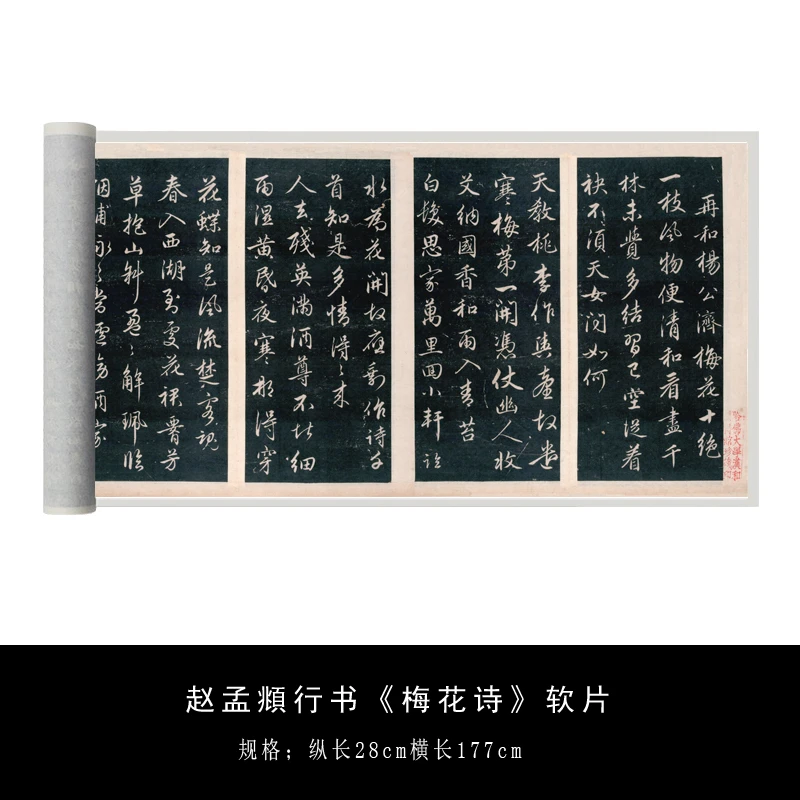 再和楊公濟梅花十絕
一枝風物便清和看盡千
林未覺多結習已空從着
袂不須天女問如何
天教桃李作輿臺故遣
寒梅第一開憑仗幽人收
艾納國香和雨入青苔
白髮思家萬里回小軒臨
水為花開故應剩作詩千
首知是多情得〻來
人去殘英滿酒尊不堪細
雨濕黃昏夜寒那得穿
花蝶知是風流楚客魂
春入西湖到處花裙腰芳
草抱山斜盈〻解珮臨
浦脉〻當壚傍酒家
赵孟頫行书《梅花诗》软片
规格；纵长28cm横长177cm